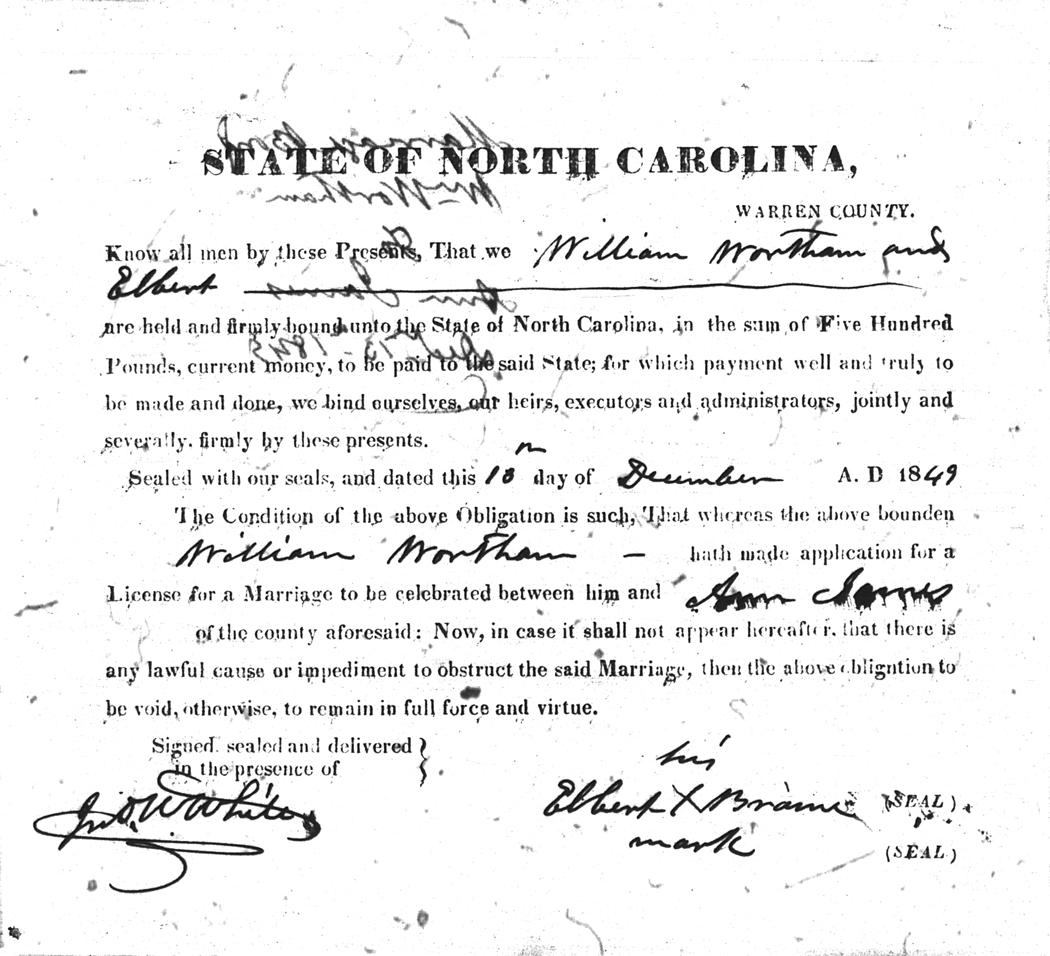 STATE OF NORTH CAROLINA,
WARREN COUNTY.
Know all men by these Presents, That we William Wortham and
Elbert
are held and firmly bound unto the State of North Carolina, in the sum of Five Hundred
Pounds, current money, to be paid to the said State; for which payment well and truly to
be made and done, we bind ourselves, our heirs, executors and administrators, jointly and
severally, firmly by these presents.
Sealed with our seals, and dated this day of December A. D 1849
The Condition of the above Obligation is such, That whereas the above bounden
William Wortham — hath made application for a
License for a Marriage to be celebrated between him and Ann James
of the county aforesaid: Now, in case it shall not appear hereafter, that there is
any lawful cause or impediment to obstruct the said Marriage, then the above obligntion to
be void, otherwise, to remain in full force and virtue.
Signed, sealed and delivered }
in the presence of
his
Jno. W White Elbert X Brame (SEAL)
mark
(SEAL)